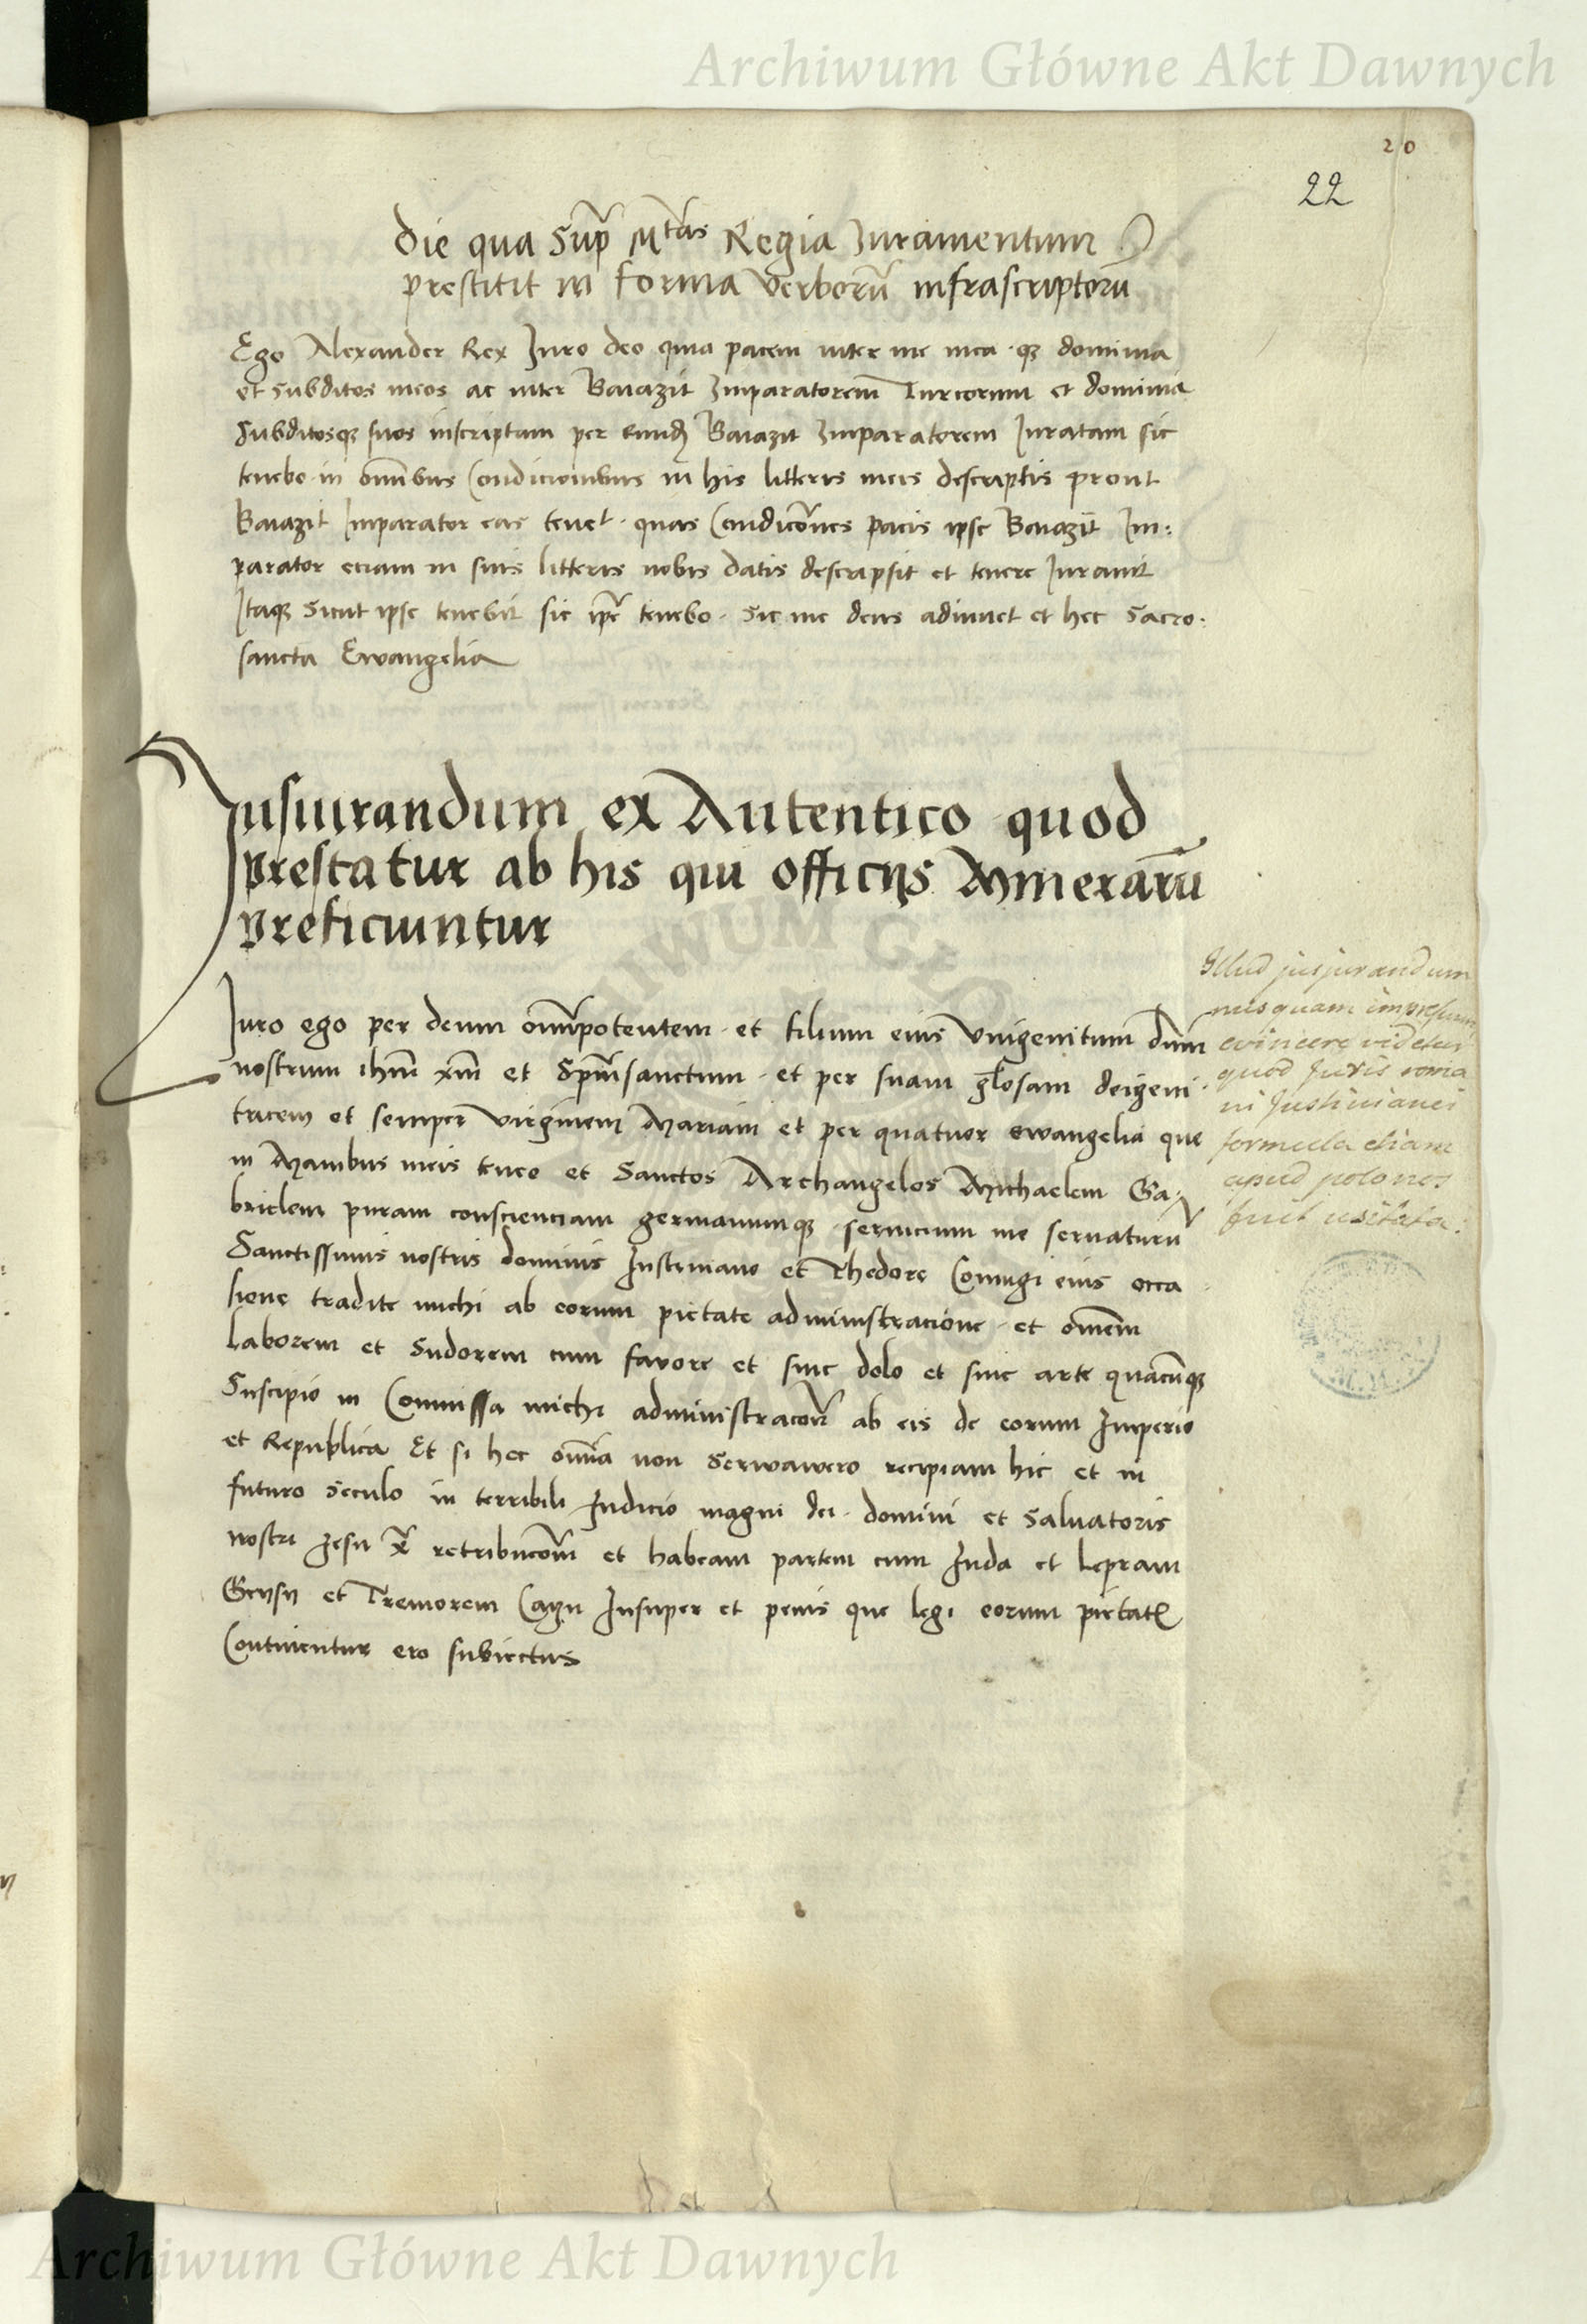 Archiwum Główne Akt Dawnych
20
22
Die qua Sup̄ Mtas Regia Iuramentum
prestitit in forma verborū infrascriptorū
Ego Alexander Rex Juro deo quia pacem inter me mea qz dominia
et subditos meos ac inter Baiazit Imparatorem̄ Turcorum et dominia
Subditosqz suos inscriptam per eundz Baiazit Imparatorem Juratam sic
tenebo in om̄ibus Condicionibus in his litteris meis descriptis prout
Baiazit Imparator eas tenet · quas Condicōnes pacis ipse Baiazit Im:
parator eciam in suis litteris nobis datis descripsit et tenere Iurauit
Itaqz Sicut ipse tenebit sic ip̄e tenebo · Sic me deus adiuuet et hec Sacro:
sancta Ewangelia
Jusiurandum ex Autentico quod
prestatur ab his qui officijs Minerarū
preficiuntur
Juro ego per deum om̄ipotentem · et filium eius Vnigenitum Dn̄m
nostrum ihm̄ xp̄m et Sp̄m sanctum · et per suam gl̄osam deigeni
tricem et semper virginem Mariam et per quatuor ewangelia que
in Manibus meis teneo et Sanctos Archangelos Michaelem Ga:
brielem puram conscienciam germanumqz seruicium me seruaturū
Sanctissimis nostris dominis Justiniano et Thedore Coniugi eius occa
sione tradite michi ab eorum pietate administracione · et om̄em
Laborem et Sudorem cum fauore et sine dolo et sine arte quacūqz
Suscipio in Commissa michi administracōne ab eis de eorum Imperio
et Republica Et si hec om̄ia non Serwawero recipiam hic et in
futuro seculo in terribili Iudicio magni dei · domini et Saluatoris
nostri Jesu xp̄i retribucōem et habeam partem cum Iuda et Lepram
Geysy et Tremorem Cayn Insuper et penis que legi eorum pietatis
Continentur ero subiectus
Illud jusjurandum
nusquam impressum
evincere videtur
quod Juris roma
ni Justinianei
formula etiam
apud polonos
fuit usitata.
Archiwum Główne Akt Dawnych